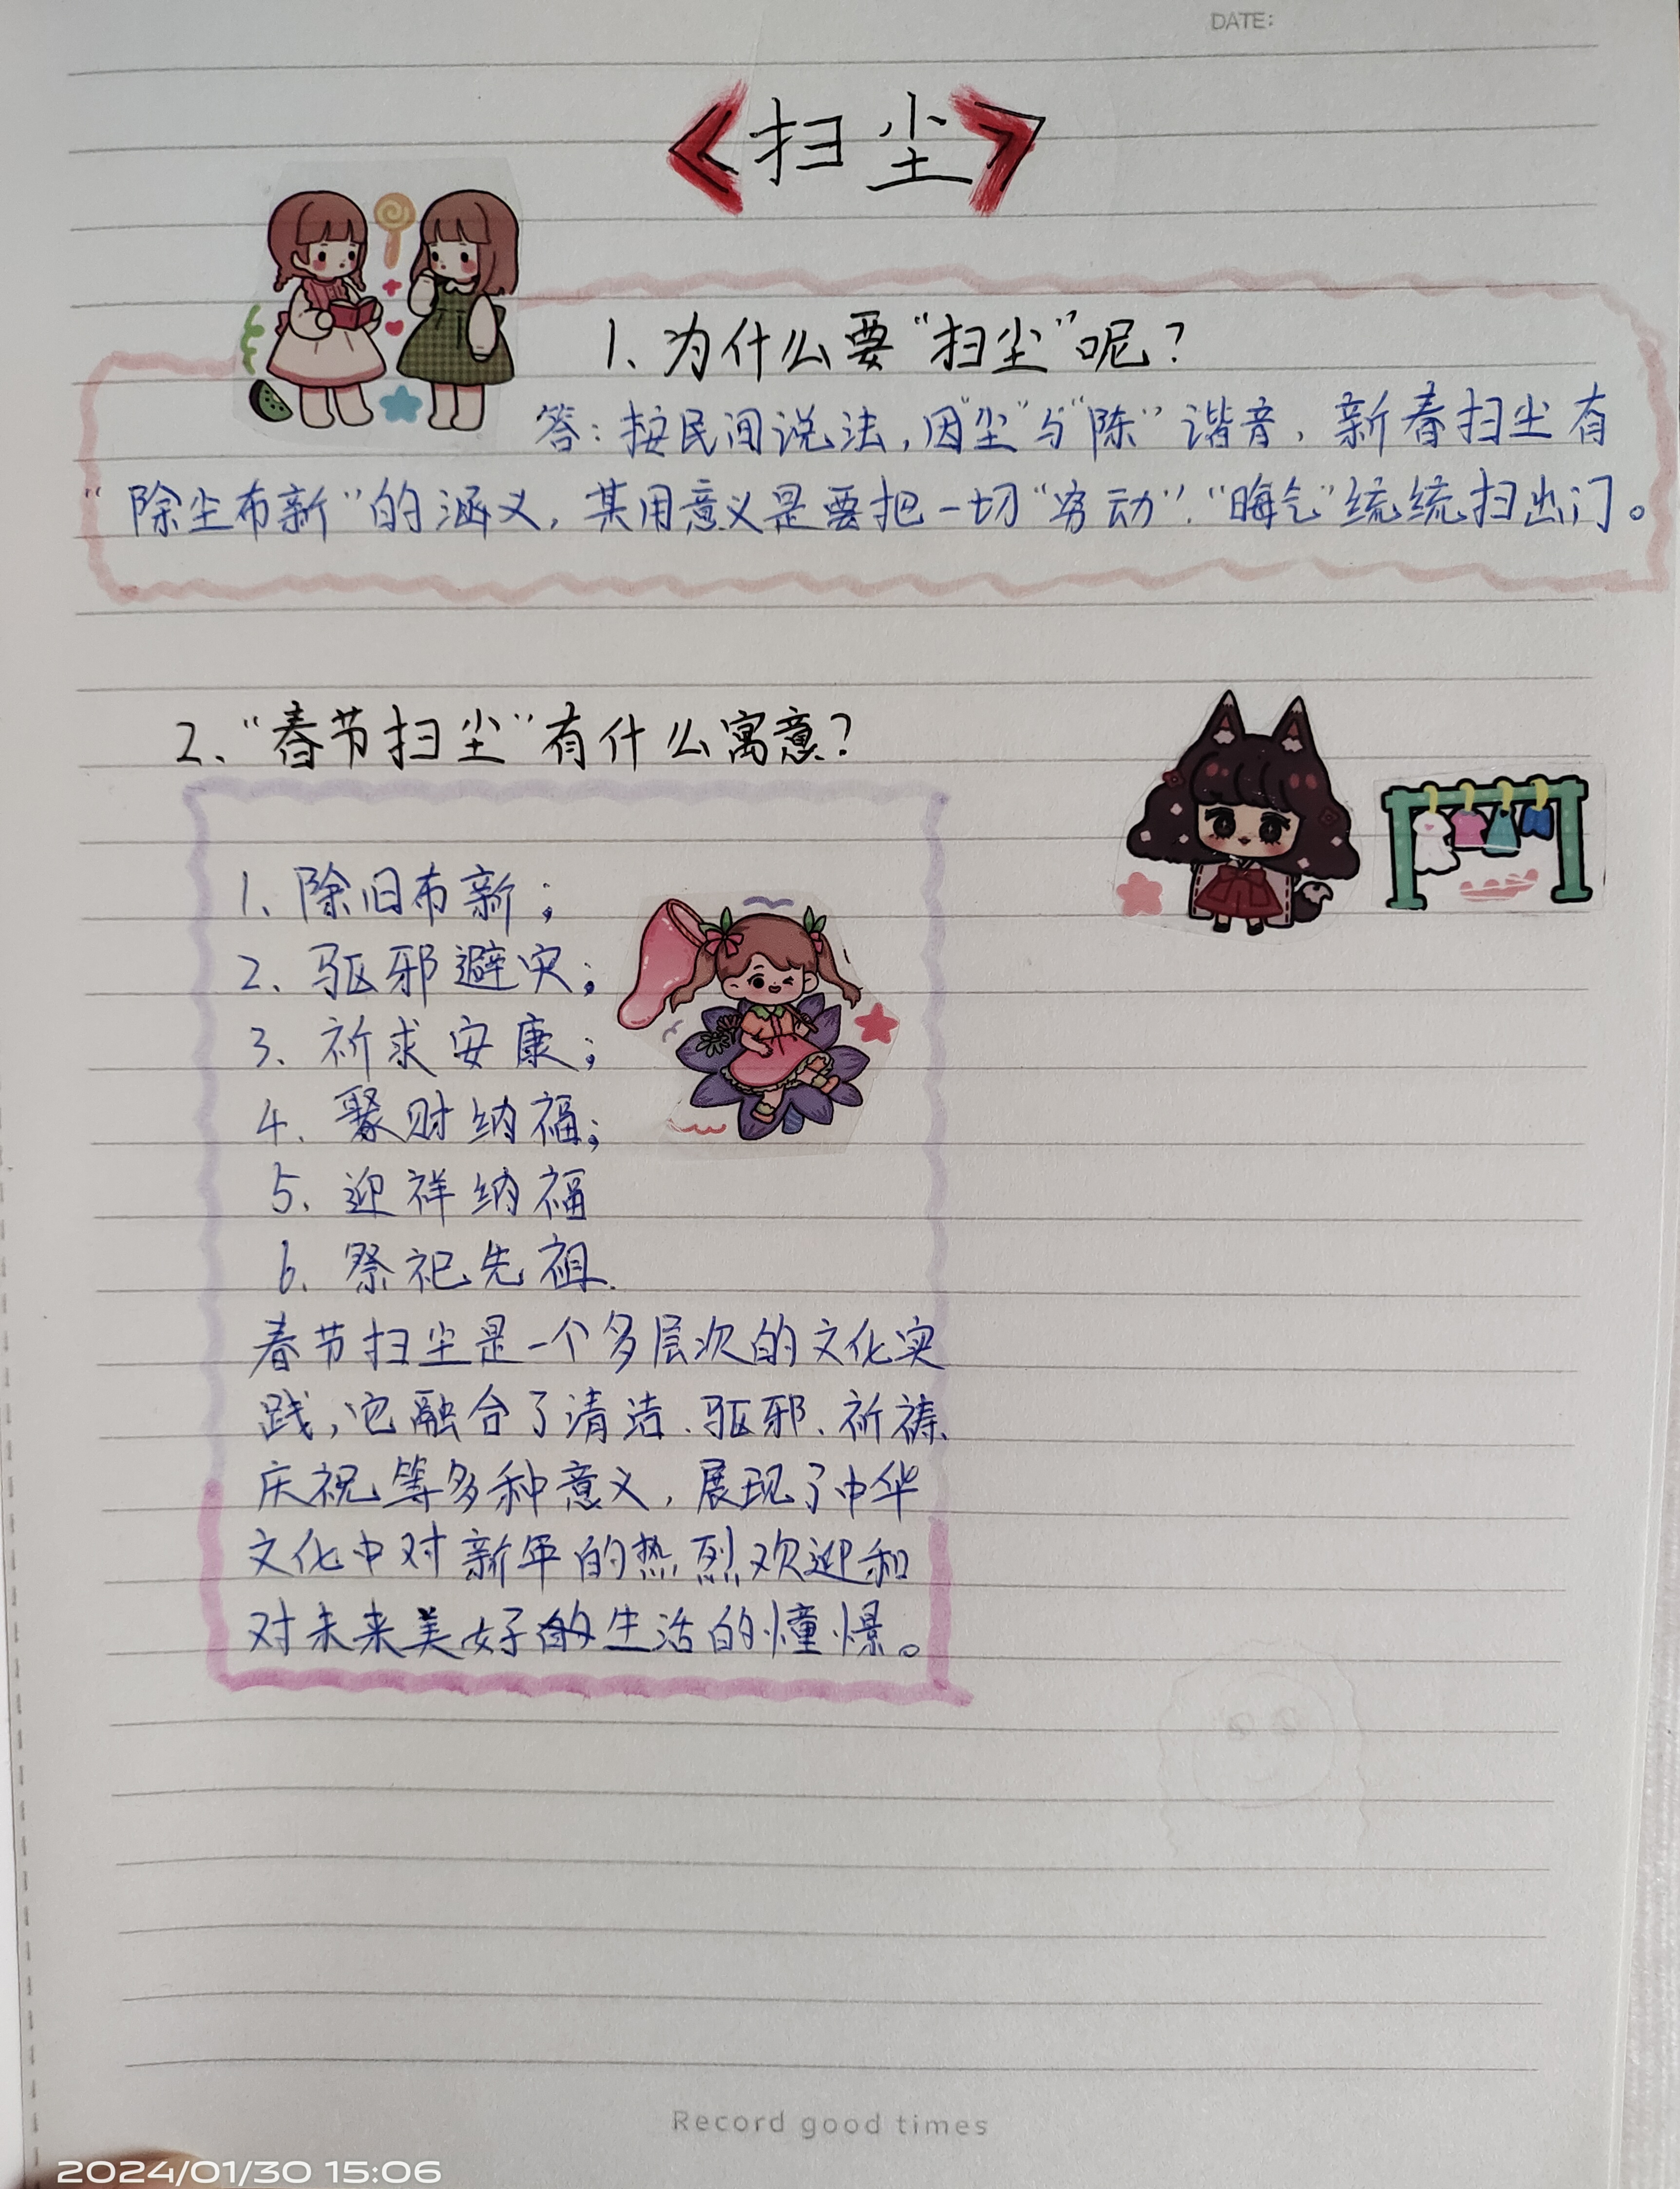 DATE:
<扫尘>
1、为什么要“扫尘”呢？
答：按民间说法，因“尘”与“陈”谐音，新春扫尘有
“除尘布新”的涵义，其用意义是要把一切“穷动”、“晦气”统统扫出门。
2、“春节扫尘”有什么寓意？
1、除旧布新；
2、驱邪避灾；
3、祈求安康；
4、聚财纳福；
5、迎祥纳福
6、祭祀先祖.
春节扫尘是一个多层次的文化实
践，它融合了清洁、驱邪、祈祷、
庆祝等多种意义，展现了中华
文化中对新年的热烈欢迎和
对未来美好的生活的憧憬。
Record good times
2024/01/30 15:06